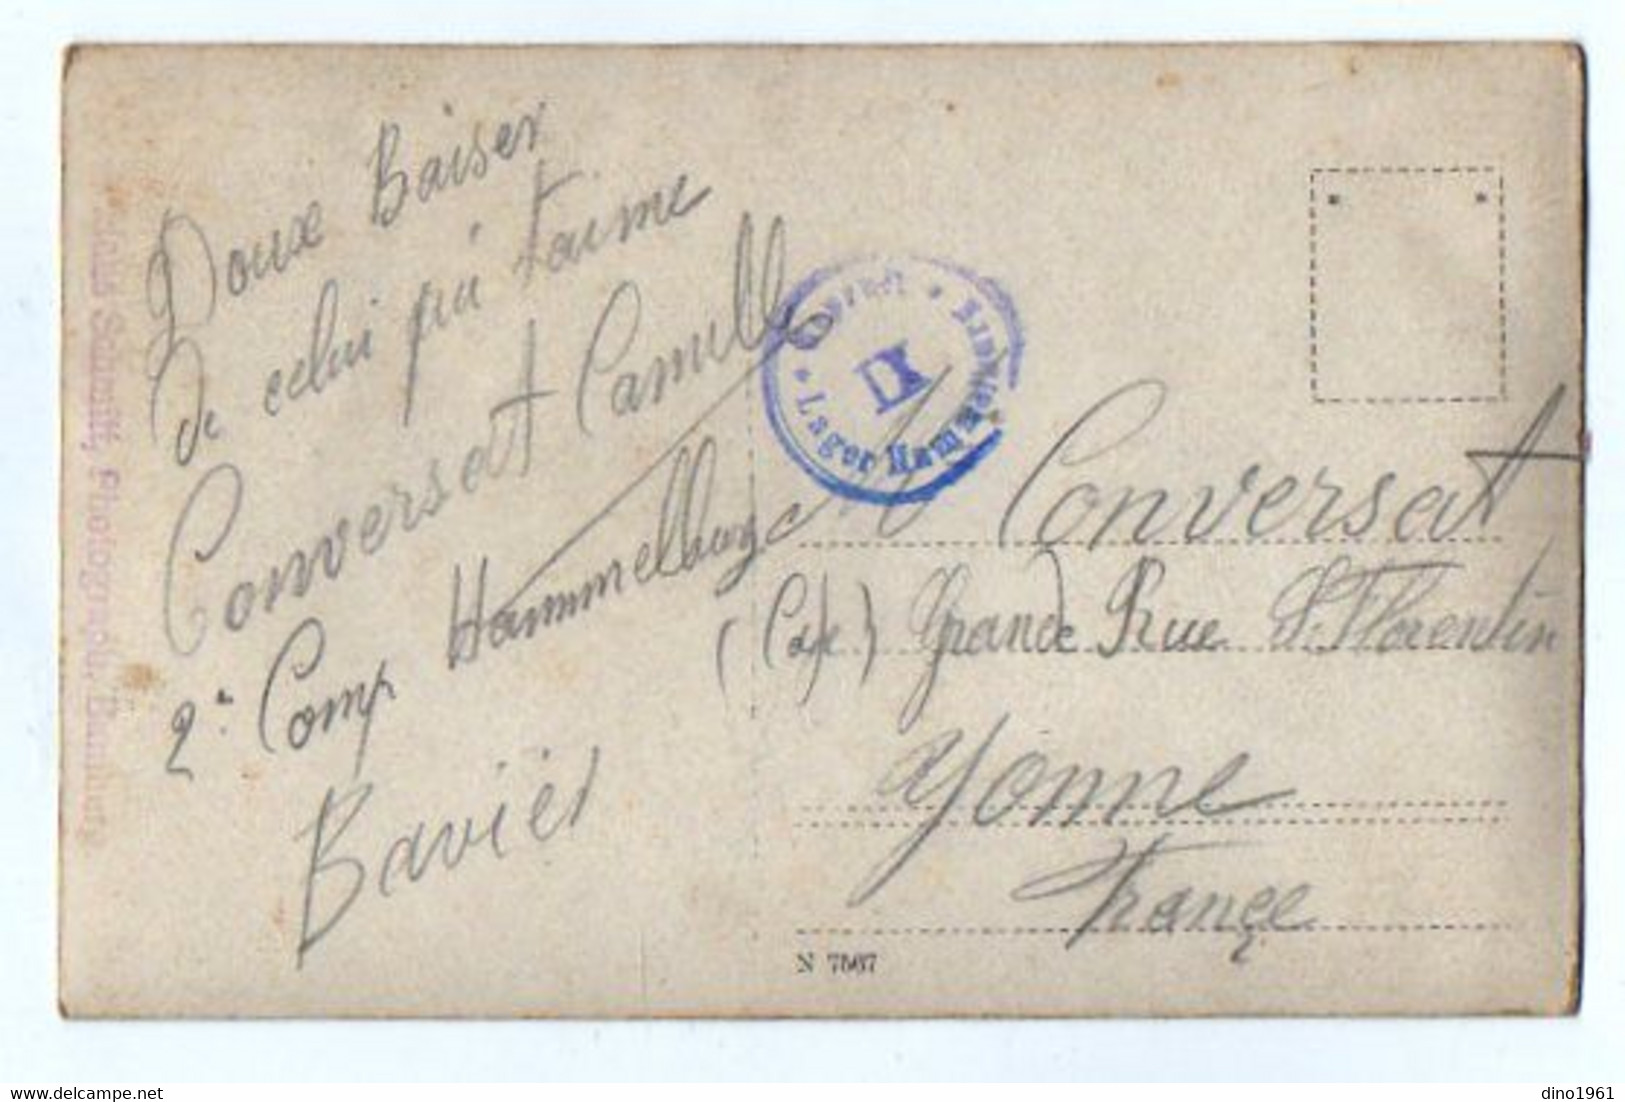 Doux Baiser
de celui qui t'aime
Conversat Camille
2e Comp Hammelburg
Bavièr
Geprüft
IX
Lager Hammelburg
Conversat
(Café) Grande Rue St Florentin
Yonne
France
N 7567
Photograph
dino1961